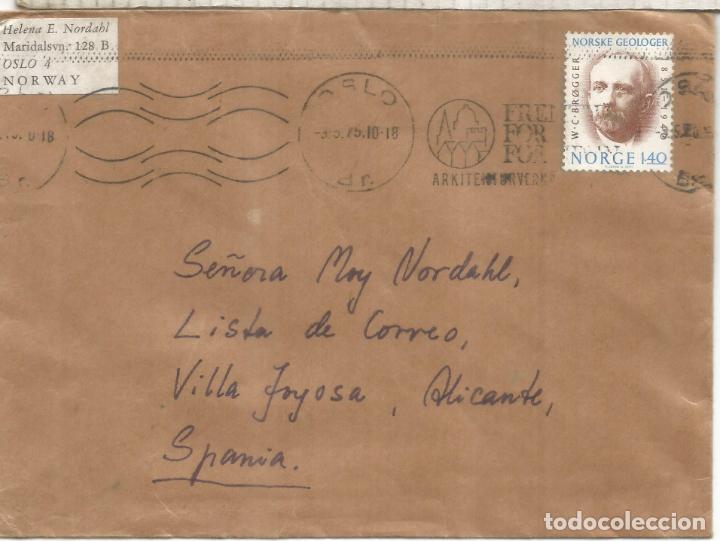 Helena E. Nordahl
Maridalsvn. 128 B
OSLO 4
NORWAY
OSLO
-9.5.75.10-18
Br.
NORSKE GEOLOGER
W·C·BRØGGER
NORGE 140
Señora Moy Nordahl,
Lista de Correo,
Villa Joyosa, Alicante,
Spania.
todocoleccion